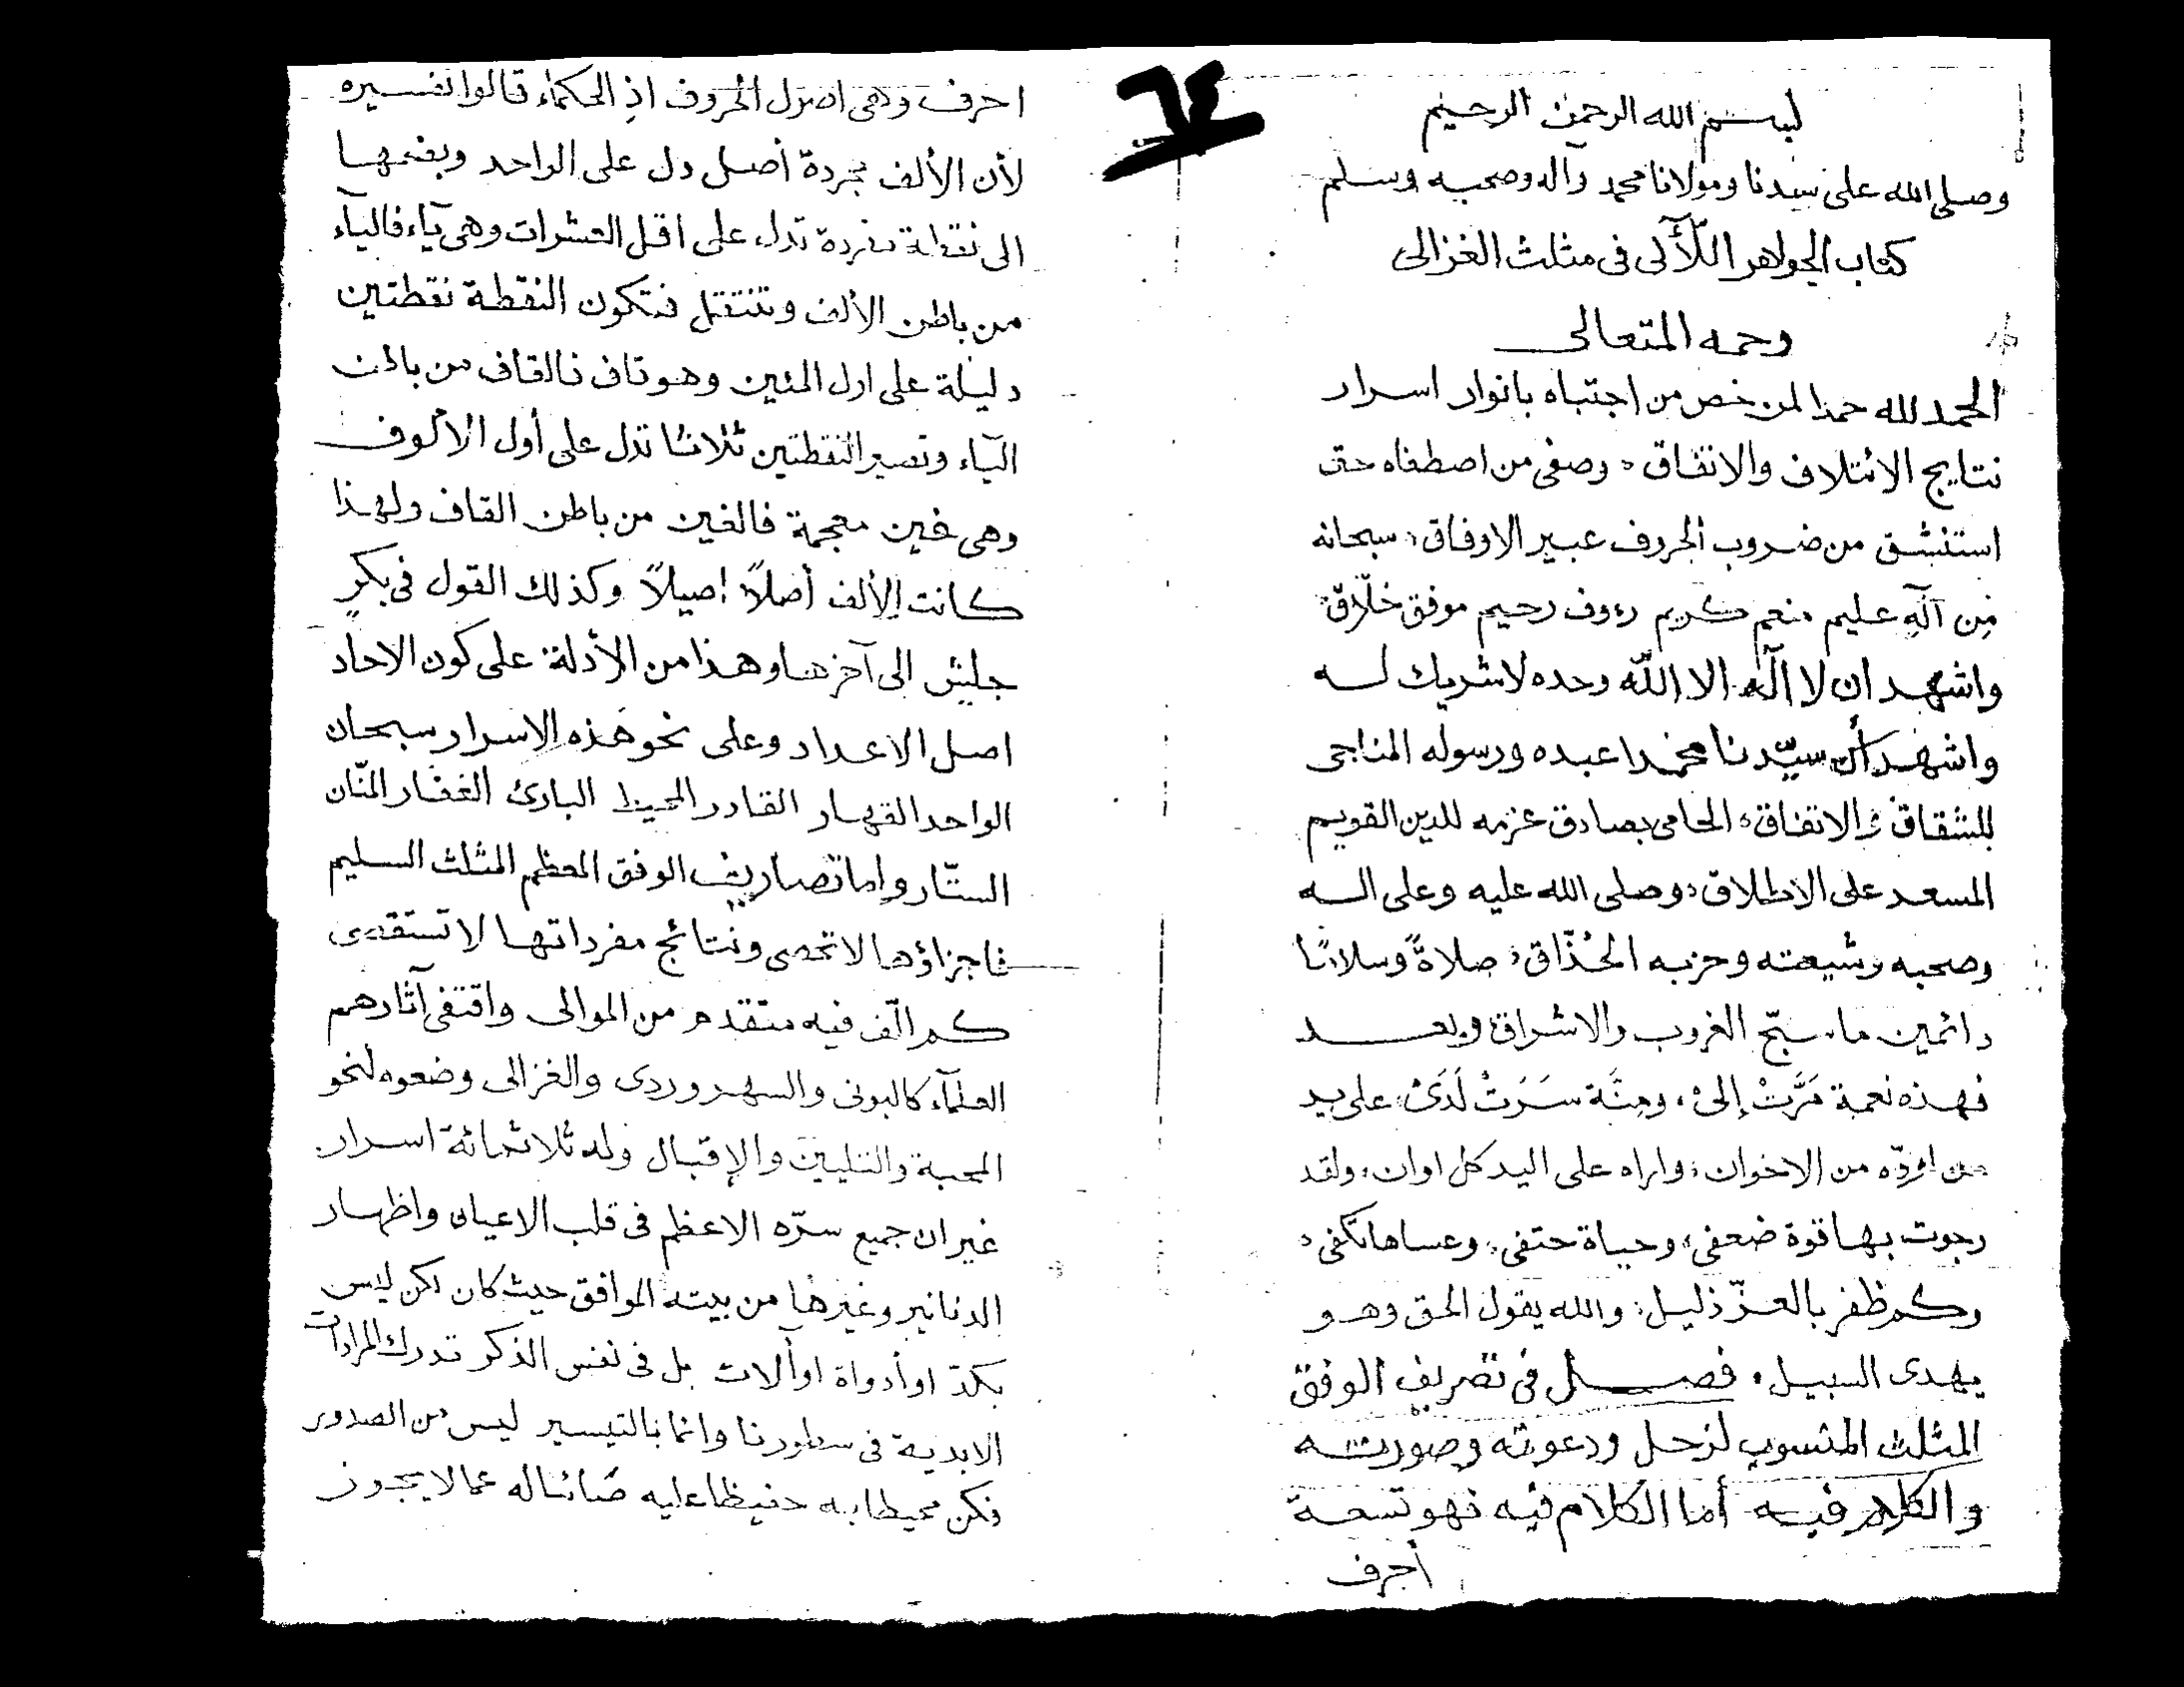 بسم الله الرحمن الرحيم
وصلى الله على سيدنا ومولانا محمد وآله وصحبه وسلم
كتاب الجواهر اللّآلى فى مثلث الغزالى
رحمه المتعالى
الحمد لله حمدا لمن خص من اجتباه بانوار اسرار
نتايج الائتلاف والاتفاق، وصفى من اصطفاه حتى
استنشق من ضروب الحروف عبير الاوفاق، سبحانه
مِن آلَهٍ عليم منعم كريم رءوف رحيم موفق خلّاق
واشهد ان لا آله الا اللّه وحده لا شريك له
واشهد أن سيّدنا محمدا عبده ورسوله المناجى
للشقاق والاتفاق، الحامى بصادق عزمه للدين القويم
المسعد على الاطلاق، وصلى الله عليه وعلى اله
وصحبه وشيعته وحزبه الحُذّاق، صلاةً وسلامًا
دائمين ما سبّح الغروب والاشراق، وبعد
فهذه نعمة مَرَّتْ إلىّ، ومِنَّة سَرَتْ لَدَىّ، على يد
من اودّه من الاخوان، واراه على اليد كل اوان، ولقد
رجوت بها قوة ضعفى، وحياة حتفى، وعساها تكفى،
وكم ظفر بالعزّ ذليل، والله يقول الحق وهو
يهدى السبيل، فصل فى تصريف الوفق
المثلث المنسوب لزحل ودعوته وصورته
والكلام فيه أما الكلام فيه فهو تسعة
أحرف
٦٤
احرف وهى اصول الحروف اذِ الحكماء قالوا تفسيره
لأن الألف مجردة أصل دل على الواحد وبضمها
الى نقطة مفردة تدل على اقل العشرات وهى يآء فاليآء
من باطن الألف وتنتقل فتكون النقطة نقطتين
دليلة على اول المئين وهو قاف فالقاف من باطن
اليآء وتصير النقطتين ثلاثا تدل على أول الألوف
وهى غين معجمة فالغين من باطن القاف ولهذا
كانت الألف أصلاً اصيلاً وكذلك القول فى بكرٍ
جلش الى آخرها وهذا من الأدلة على كون الاحاد
اصل الاعداد وعلى نحو هذه الاسرار سبحان
الواحد القهار القادر المحيط البارئ الغفار المنّان
الستّار واما تصاريف الوفق المعظم المثلث السليم
فاجزاؤها لا تحصى ونتائج مفرداتها لا تستقصى
كم الّف فيه متقدم من الموالى واقتفى آثارهم
العلمآء كالبونى والسهروردى والغزالى وضعوه لنحو
المحبة والتليين والإقبال وله ثلاثمائة اسرار
غير ان جميع سرّه الاعظم فى قلب الاعيان واظهار
الدنانير وغيرها من بيته الموافق حيث كان لكن ليس
بكدّ او أدواة او آلات بل فى نفس الذكر تدرك المرادات
الابدية فى سطورنا وانما بالتيسير ليس من الصدور
فكن محيطا به حفيظا عليه صَائنا له عما لا يجوز